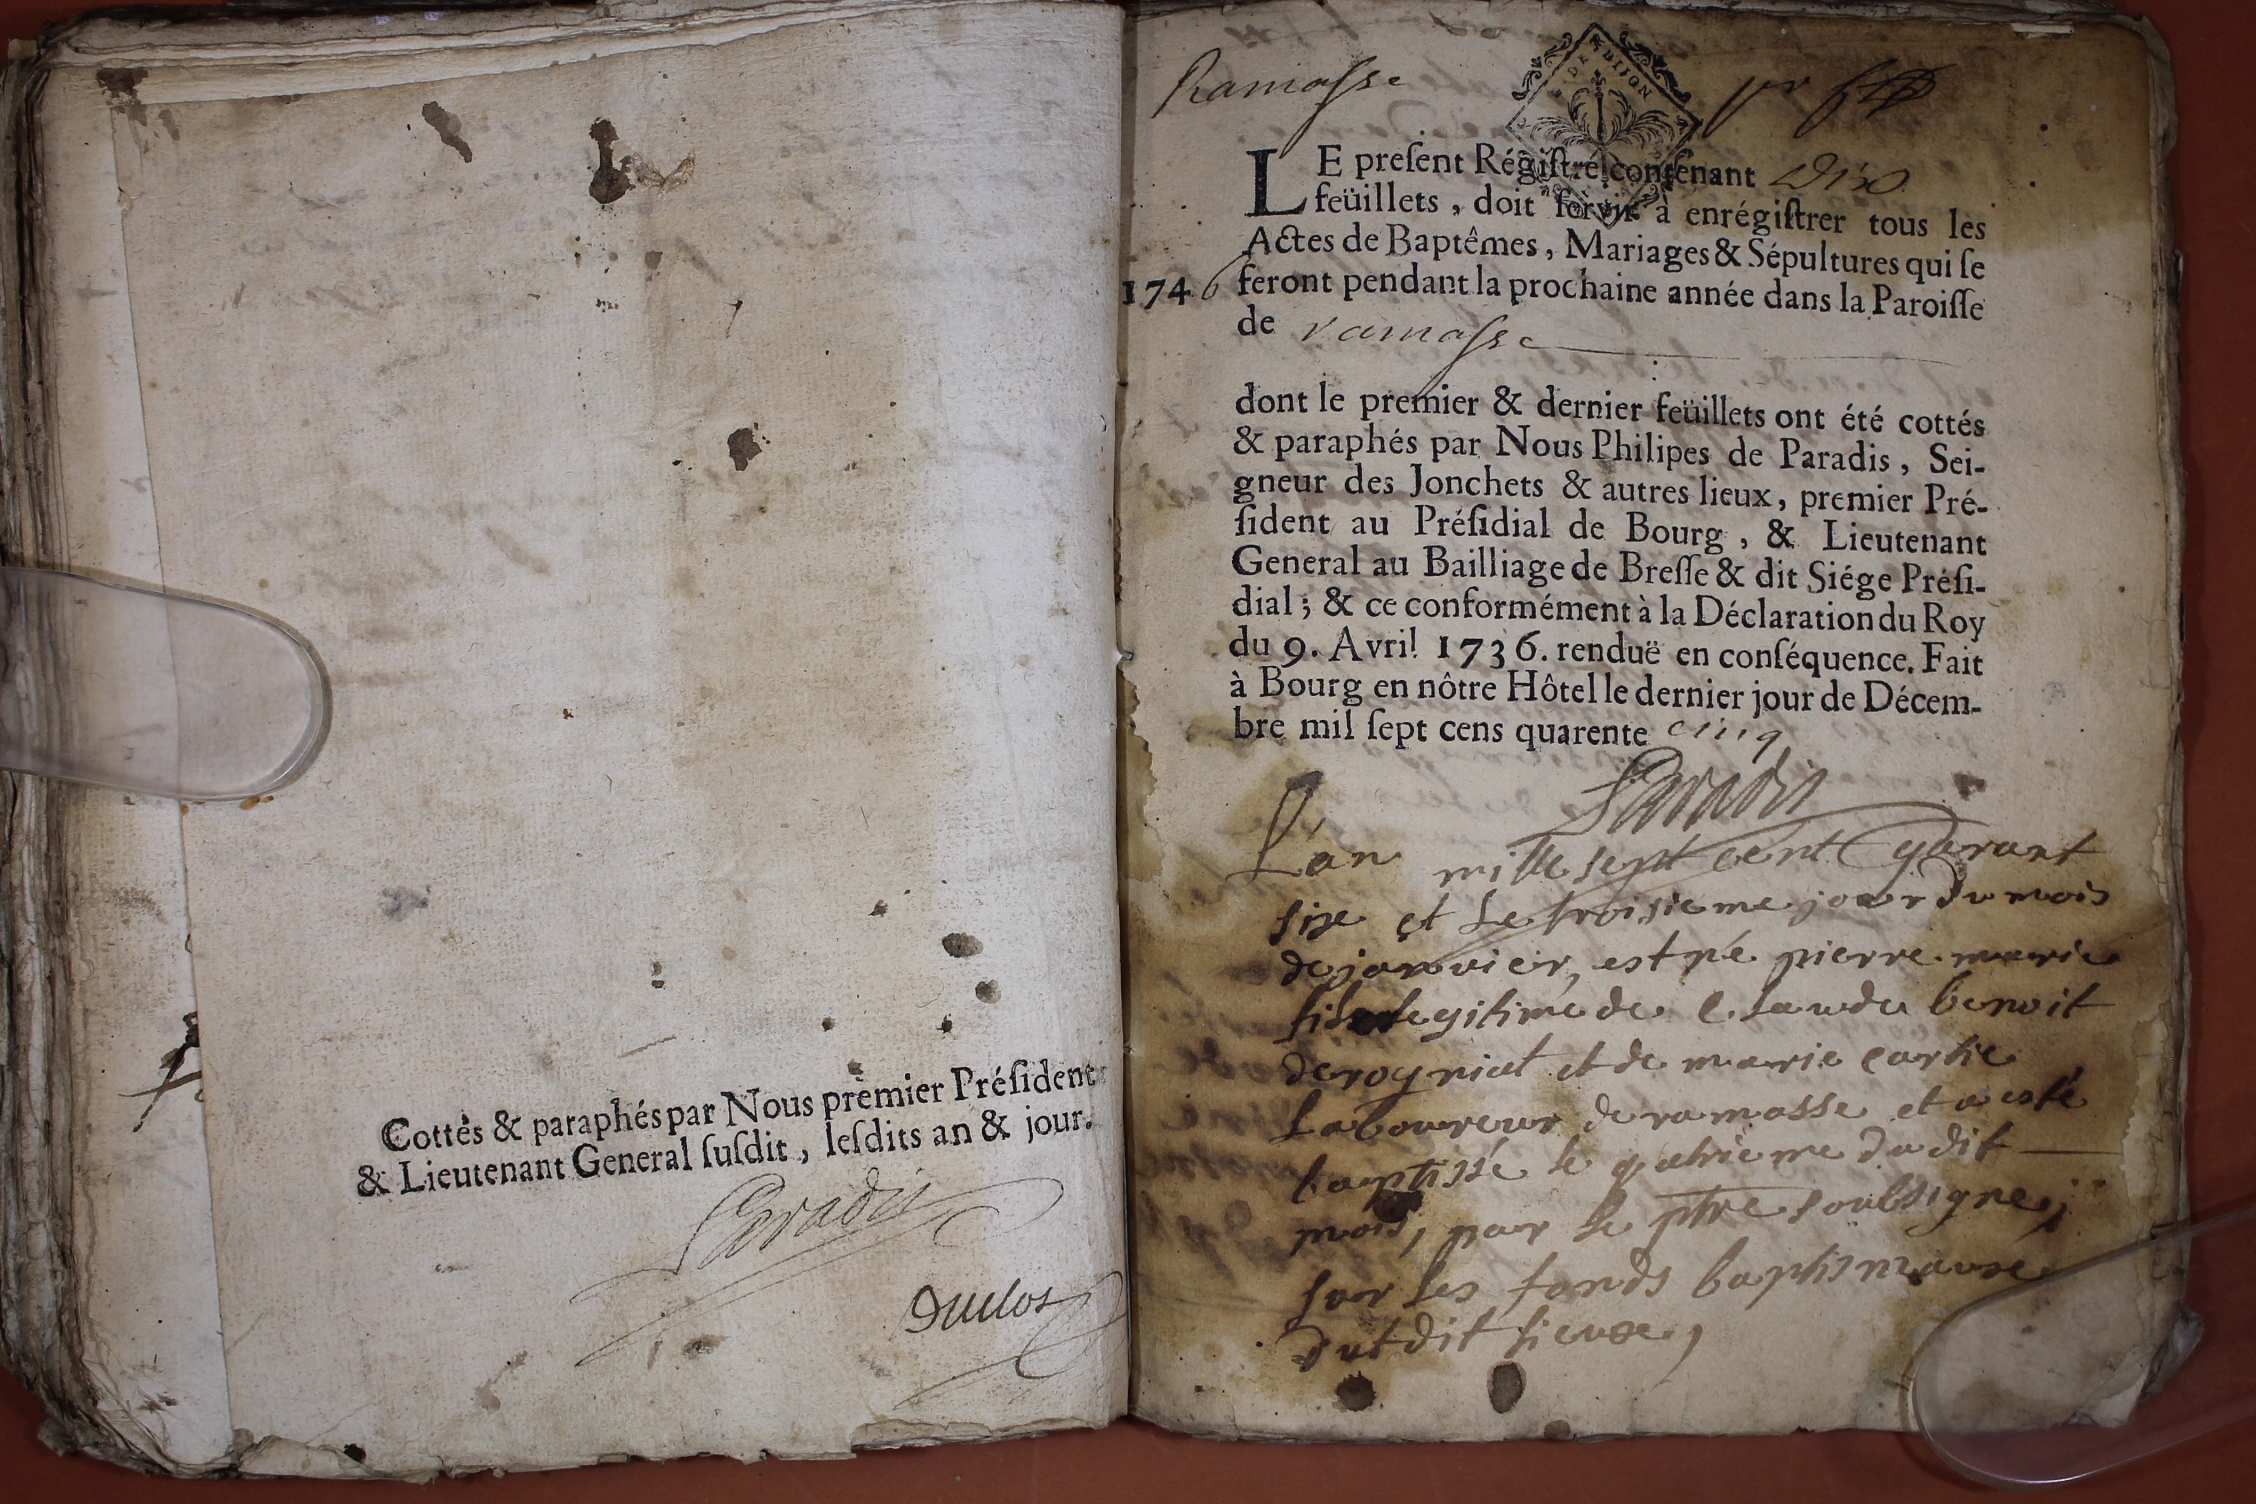 Cottés & paraphés par Nous premier Préſident
& Lieutenant General ſuſdit, leſdits an & jour.
Paradis
Duclos
Ramasse
DE DIJON
LE preſent Régiſtre contenant Dix
feüillets, doit ſervir à enrégiſtrer tous les
Actes de Baptêmes, Mariages & Sépultures qui ſe
1746 feront pendant la prochaine année dans la Paroiſſe
de ramasse
dont le premier & dernier feüillets ont été cottés
& paraphés par Nous Philipes de Paradis, Sei-
gneur des Jonchets & autres lieux, premier Pré-
ſident au Préſidial de Bourg, & Lieutenant
General au Bailliage de Breſſe & dit Siége Préſi-
dial; & ce conformément à la Déclaration du Roy
du 9. Avril 1736. renduë en conſéquence. Fait
à Bourg en nôtre Hôtel le dernier jour de Décem-
bre mil ſept cens quarente cinq
Paradis
L'an mille sept cent quarant
six et le troisieme jour du mois
de janvier, est né pierre marie
fils legitime de claude benoit
derognat et de marie carlie
laboureur de ramasse et a esté
baptisée le quatrieme dudit
mois, par le ptre soubsigne,
sur les fonds baptismaux
dutdit lieux,